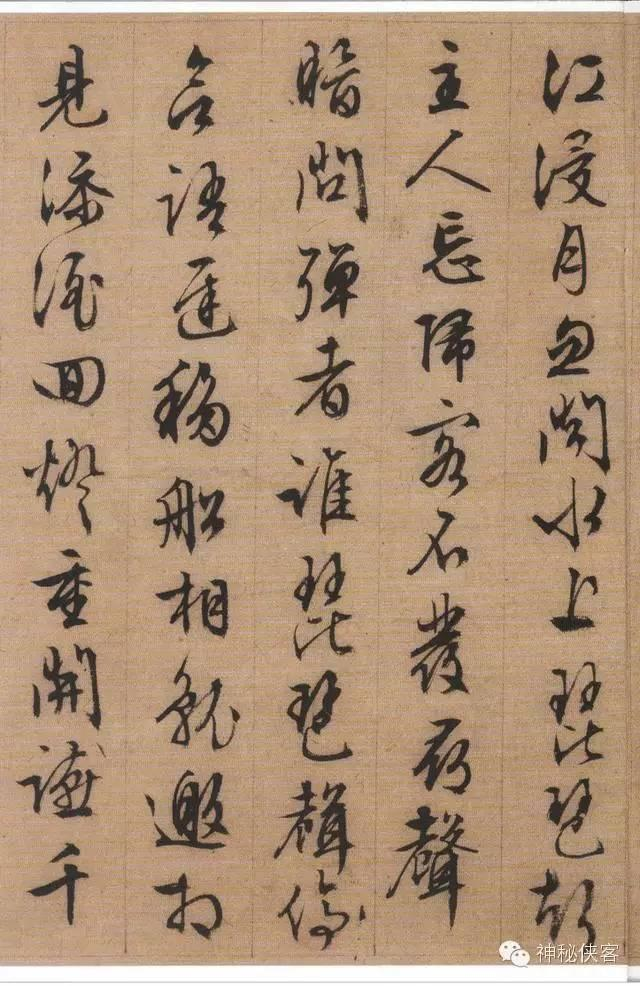 江浸月忽聞水上琵琶聲
主人忘歸客不發尋聲
暗問彈者誰琵琶聲停
欲語遲移船相就邀相
見添酒回燈重開讌千
神秘侠客